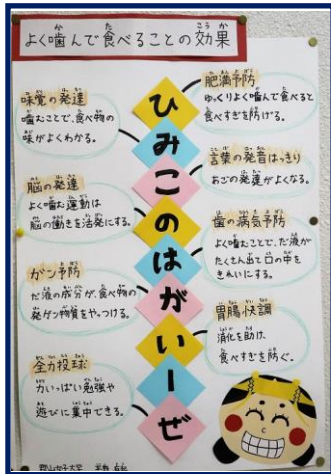 よく噛んで食べることの効果
ひみこのはがいーぜ
肥満予防
ゆっくりよく噛んで食べると
食べすぎを防げる。
味覚の発達
噛むことで、食べ物の
味がよくわかる。
言葉の発音はっきり
あごの発達がよくなる。
脳の発達
よく噛む運動は
脳の働きを活発にする。
歯の病気予防
よく噛むことで、だ液が
たくさん出て口の中を
きれいにする。
ガン予防
だ液の成分が、食べ物の
発ガン物質をやっつける。
胃腸快調
消化を助け、
食べすぎを防ぐ。
全力投球
力いっぱい勉強や
遊びに集中できる。
郡山女子大学